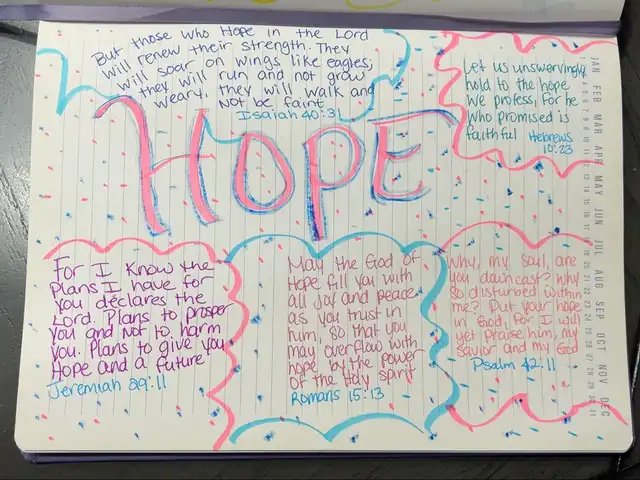 But those who Hope in the Lord
will renew their strength. They
will soar on wings like eagles;
they will run and not grow
weary, they will walk and
not be faint
Isaiah 40:31
Let us unswervingly
hold to the hope
We profess, for he
who promised is
faithful Hebrews
10:23
HOPE
For I know the
Plans I have for
You declares the
Lord. Plans to prosper
You and not to harm
You. Plans to give you
Hope and a future
Jeremiah 29:11
May the God of
Hope fill you with
all joy and peace
as you trust in
him, so that you
may overflow with
hope by the power
of the Holy spirit
Romans 15:13
Why, my soul, are
you downcast? Why
so disturbed within
me? Put your hope
in God, for I will
yet praise him, my
savior and my God
Psalm 42:11
JAN FEB MAR APR MAY JUN JUL AUG SEP OCT NOV DEC